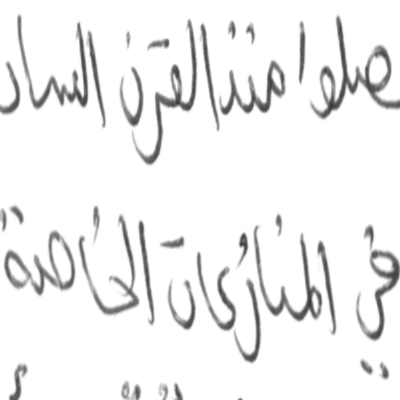 عملوا منذ القرن الساد
في المنازعات الخاصة